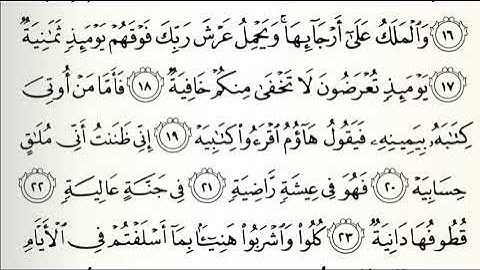 ١٦ وَالْمَلَكُ عَلَىٰ أَرْجَائِهَا ۚ وَيَحْمِلُ عَرْشَ رَبِّكَ فَوْقَهُمْ يَوْمَئِذٍ ثَمَانِيَةٌ
١٧ يَوْمَئِذٍ تُعْرَضُونَ لَا تَخْفَىٰ مِنكُمْ خَافِيَةٌ ١٨ فَأَمَّا مَنْ أُوتِيَ
كِتَابَهُ بِيَمِينِهِ فَيَقُولُ هَاؤُمُ اقْرَءُوا كِتَابِيَهْ ١٩ إِنِّي ظَنَنتُ أَنِّي مُلَاقٍ
حِسَابِيَهْ ٢٠ فَهُوَ فِي عِيشَةٍ رَّاضِيَةٍ ٢١ فِي جَنَّةٍ عَالِيَةٍ ٢٢
قُطُوفُهَا دَانِيَةٌ ٢٣ كُلُوا وَاشْرَبُوا هَنِيئًا بِمَا أَسْلَفْتُمْ فِي الْأَيَّامِ